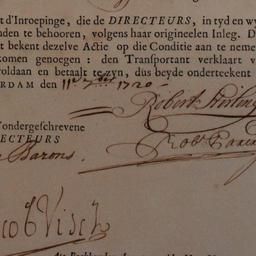 t d'Inroepinge, die de DIRECTEURS, in tyd en wy
nden te behooren, volgens haar origineelen Inleg. D
t bekent dezelve Actie op die Conditie aan te neme
komen genoegen: den Transportant verklaart v
voldaan en betaalt te zyn, dus beyde onderteekent
ERDAM den 11e 7ber 1720
Robert
ondergeschrevene
RECTEURS
Barons.
cob Visch